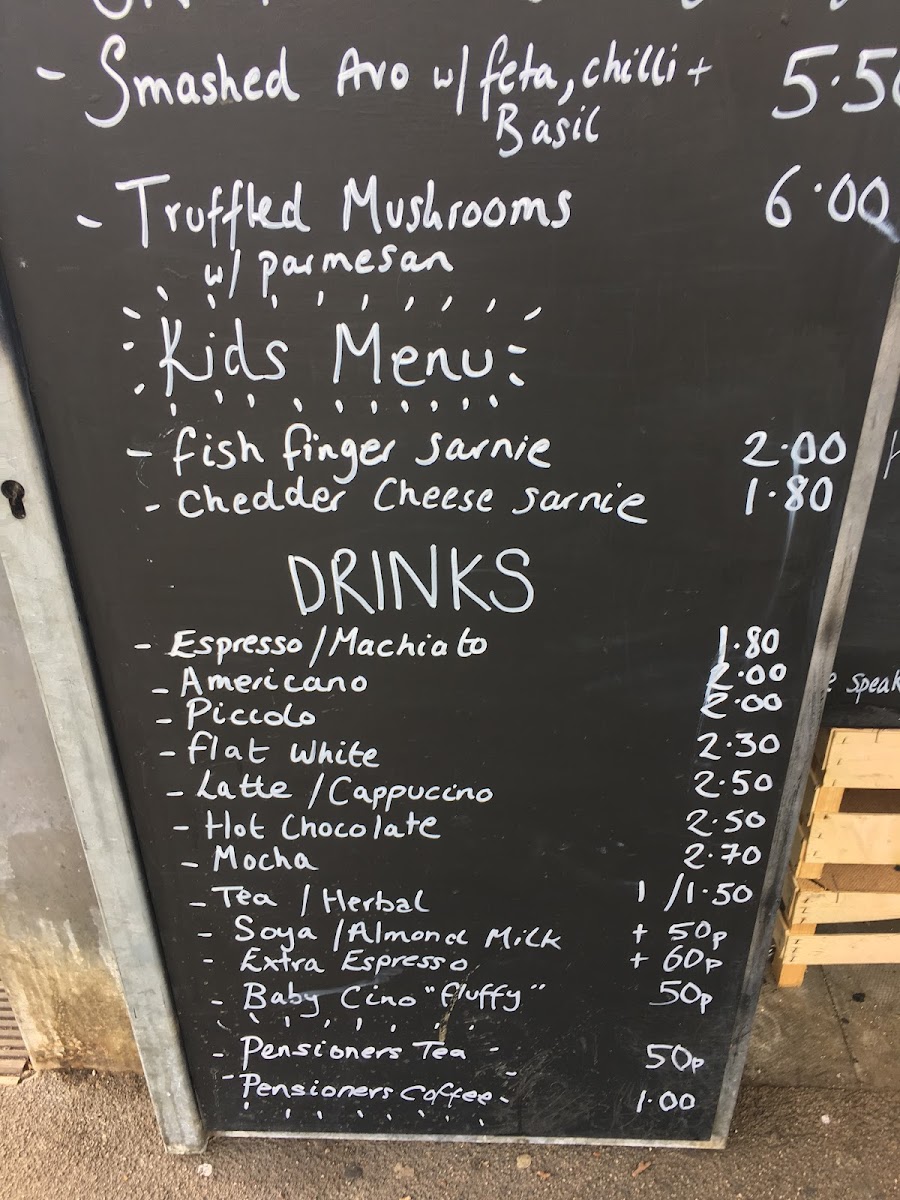 - Smashed Avo w/ feta, chilli + 5.50
Basil
- Truffled Mushrooms 6.00
w/ parmesan
Kids Menu
- fish finger sarnie 2.00
- Chedder Cheese sarnie 1.80
DRINKS
- Espresso/Machiato 1.80
- Americano 2.00
- Piccolo 2.00
- flat white 2.30
- Latte /Cappuccino 2.50
- Hot Chocolate 2.50
- Mocha 2.70
- Tea / Herbal 1 /1.50
- Soya /Almond Milk + 50p
- Extra Espresso + 60p
- Baby Cino "fluffy" 50p
- Pensioners Tea - 50p
- Pensioners Coffee - 1.00
speak